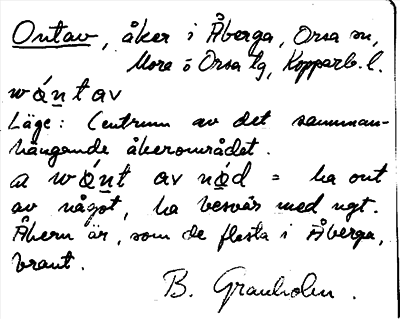 Ontav, åker i Åberga, Orsa sn,
Mora o Orsa tg, Kopparb. l.
wǻ̲n̲tav
Läge: Centrum av det samman-
hängande åkerområdet.
a wǻ̲n̲t av nå̲d = ha ont
av något, ha besvär med ngt.
Åkern är, som de flesta i Åberga,
brant.
B. Granholm.